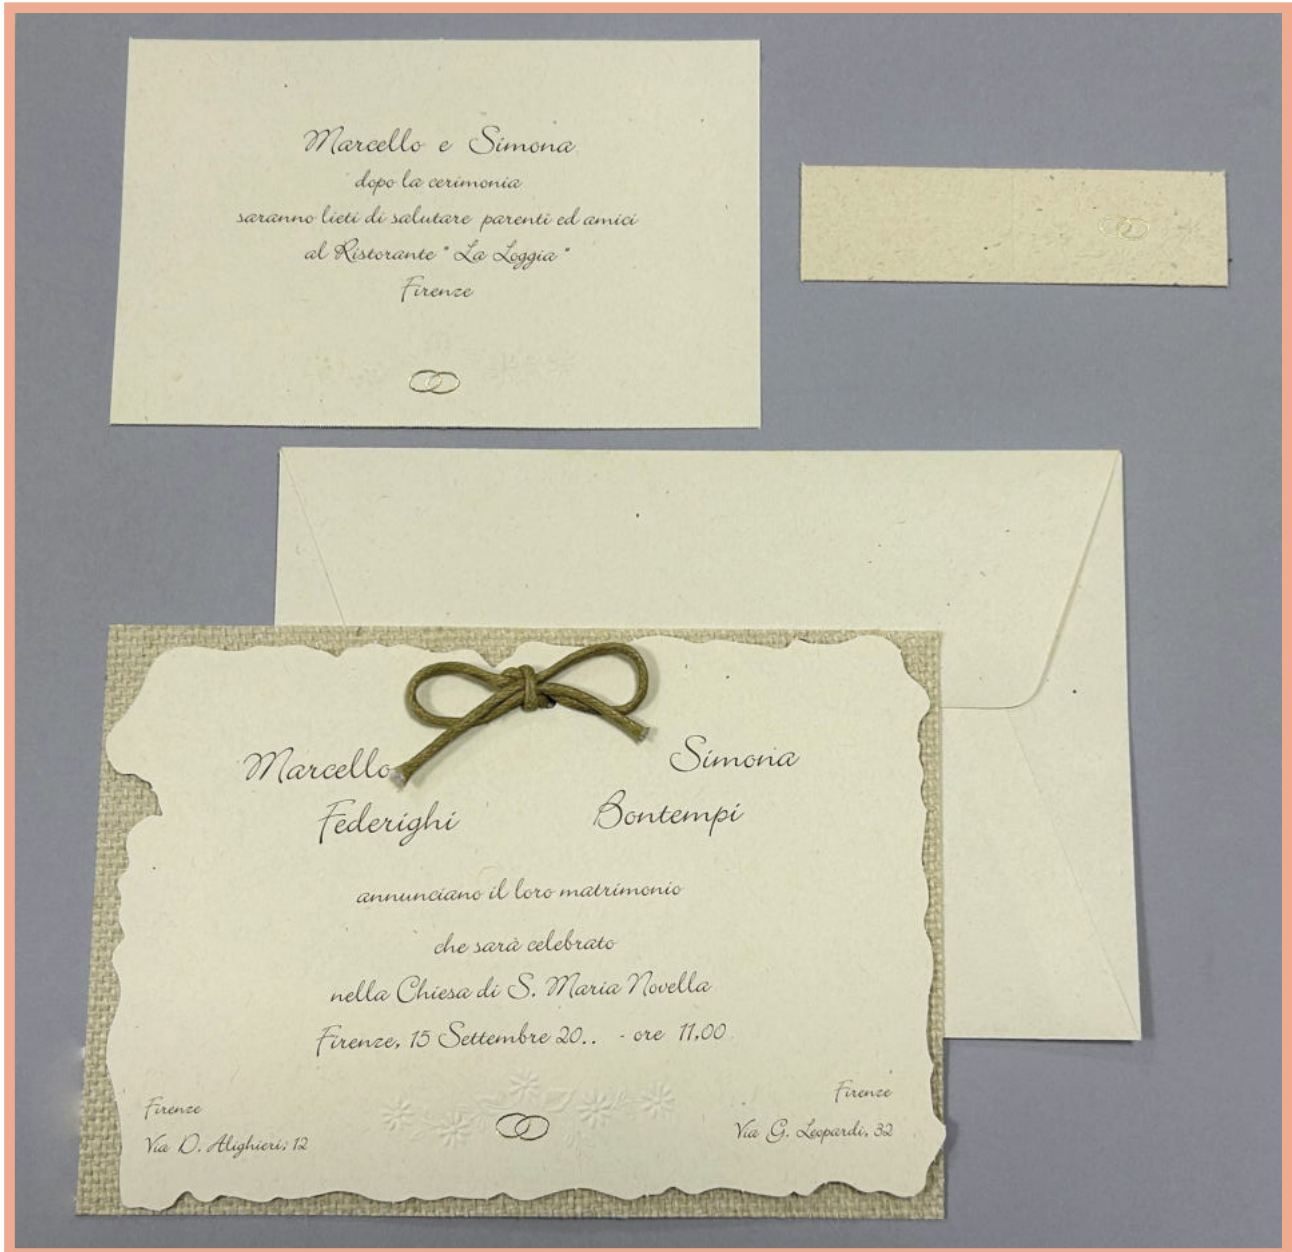 Marcello e Simona
dopo la cerimonia
saranno lieti di salutare parenti ed amici
al Ristorante " La Loggia "
Firenze
Marcello Simona
Federighi Bontempi
annunciano il loro matrimonio
che sarà celebrato
nella Chiesa di S. Maria Novella
Firenze, 15 Settembre 20.. - ore 11,00
Firenze
Via D. Alighieri, 12
Firenze
Via G. Leopardi, 32